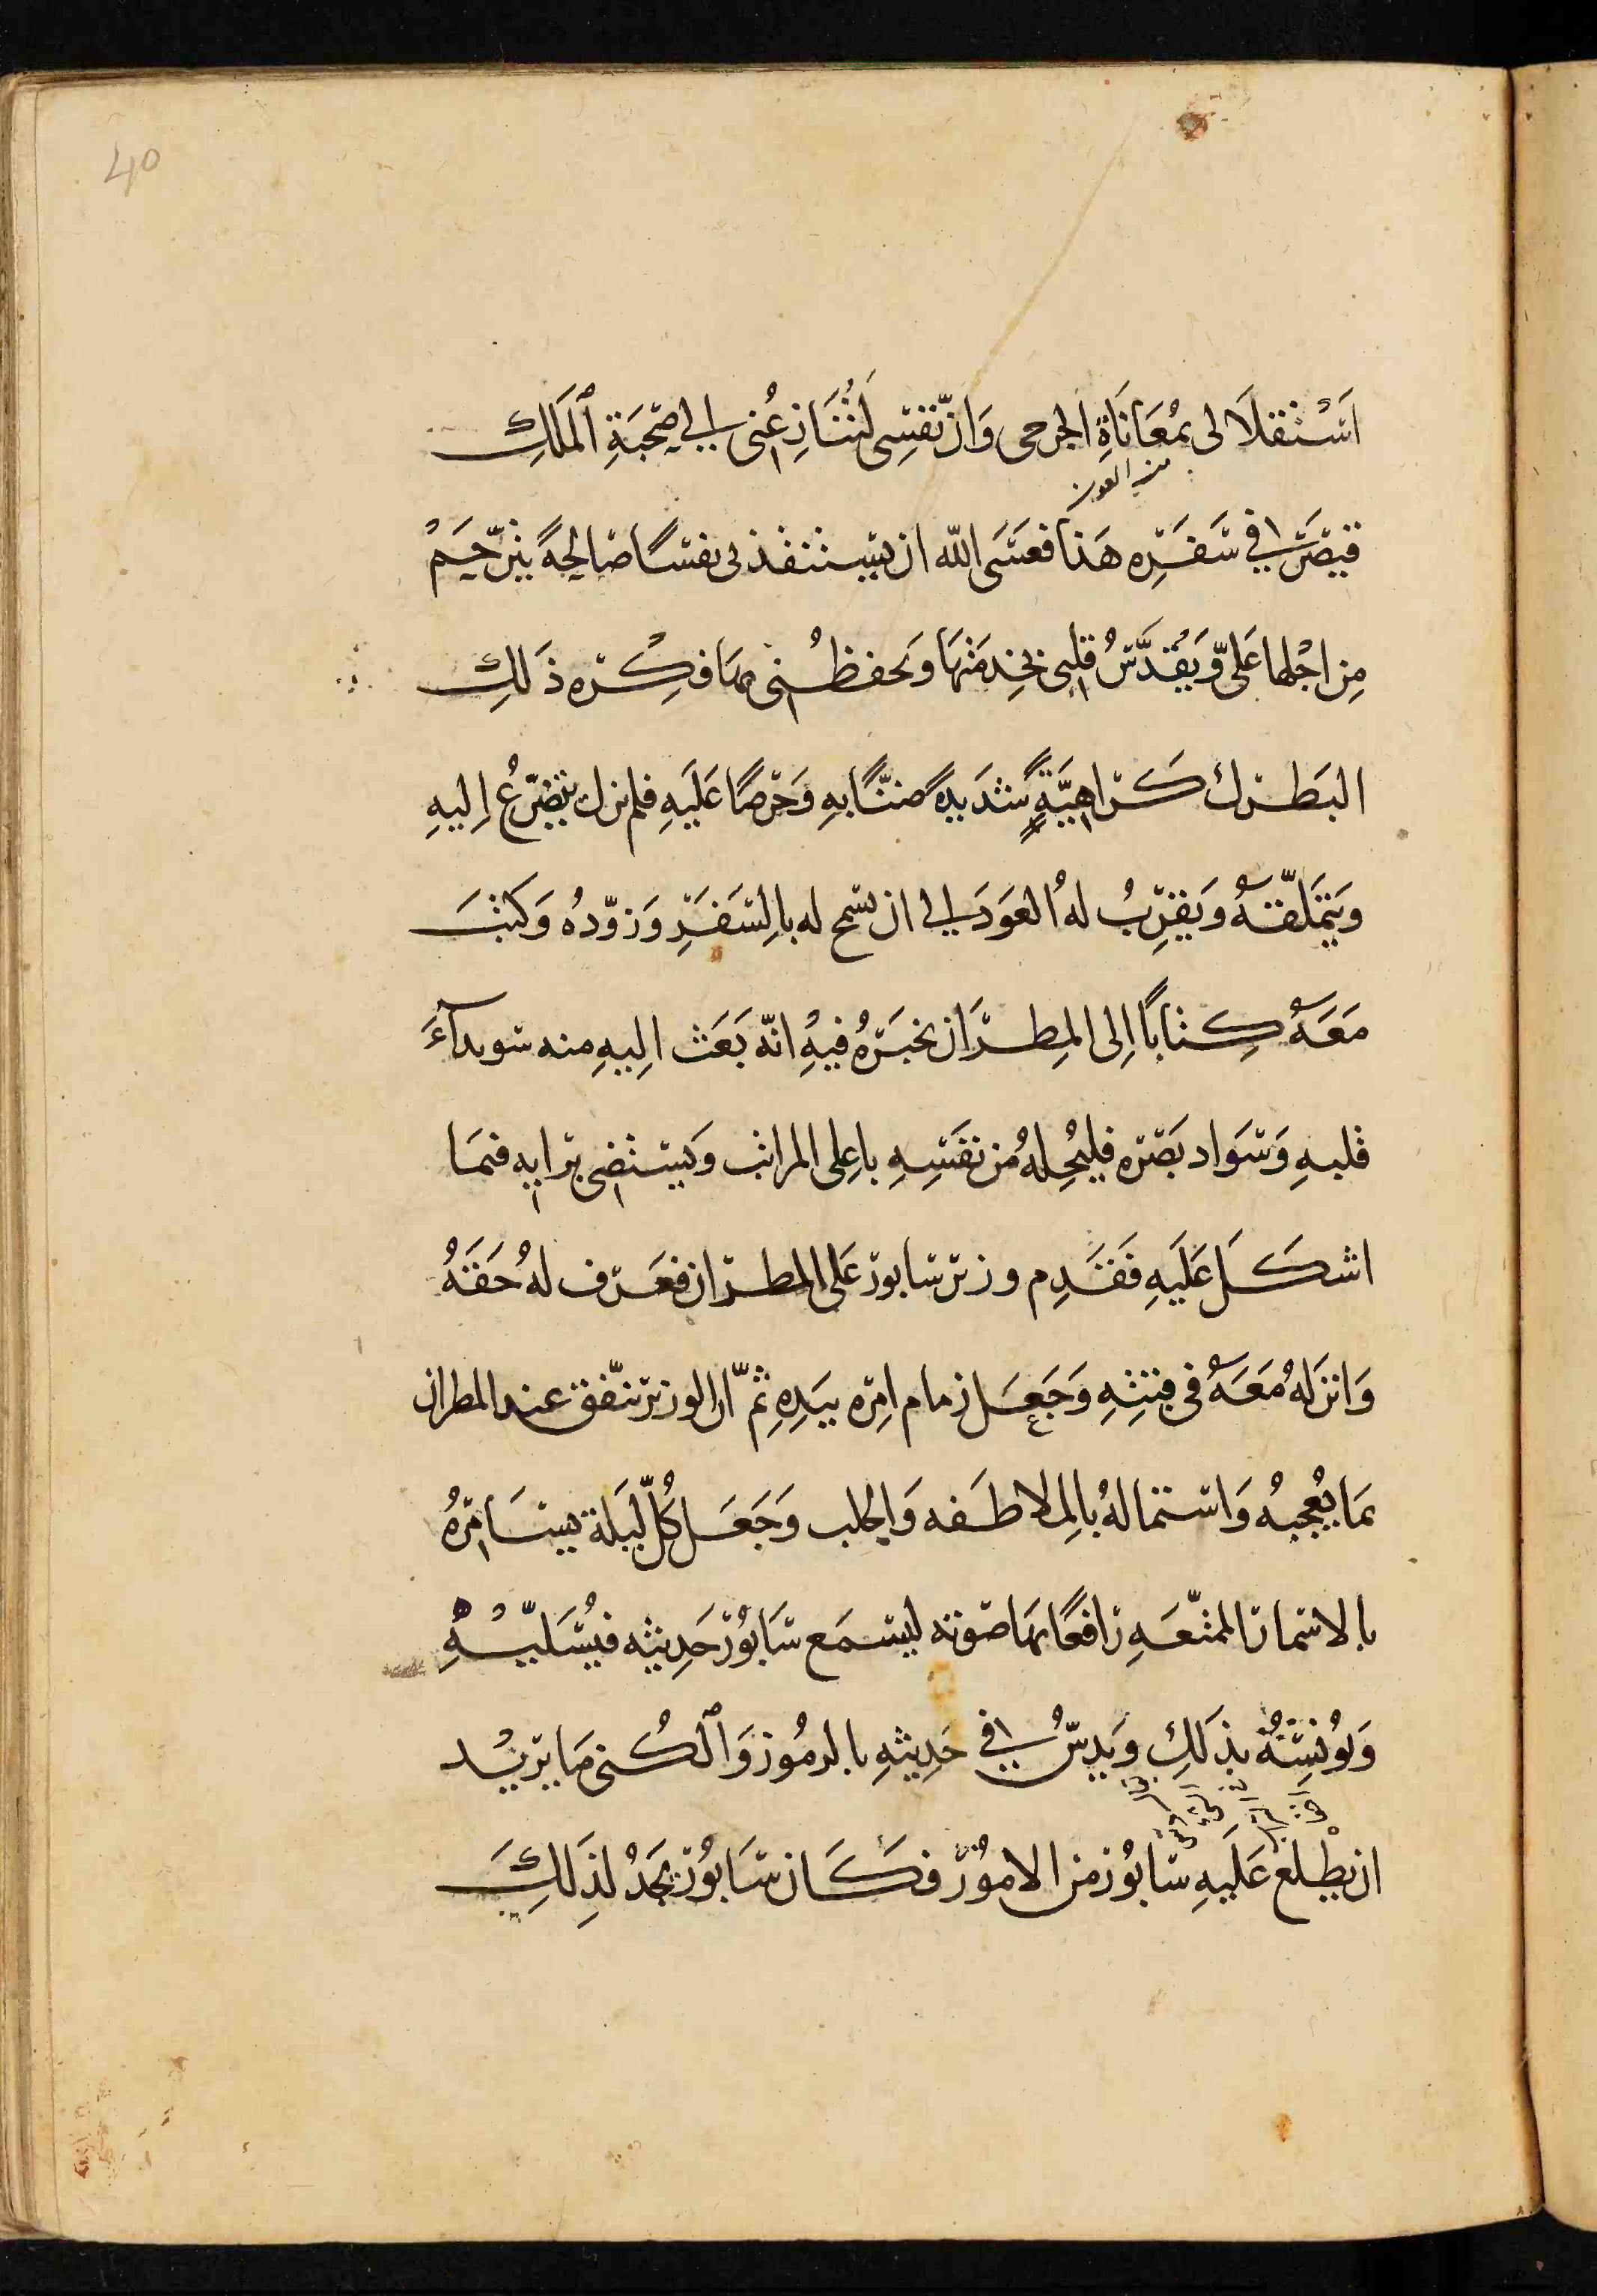 40
اَسْتثقلَا لى بمُعَانَاةِ الجرحى وَانّ نَفسِى لَتُنَازِعُنى الى صِحْبَةِ ٱلمَلَكِ
من العون
قيصَر فى سَفَرِه هَذا فعَسَى الله ان يستنقذ لى نفسًا صَالحِةً يترحّمُ
مِن اجْلها عَلىّ وَيُقدَّسُ قلبى بخِدمَتهَا وَيحفظُنى بهَا فكِره ذَلكِ
البَطرك كَراهِيَّةً شدَيدةً ضنًّا بهِ وَحِرْصًا عَلَيهِ فلم يزل يتضرّعُ اِليهِ
وَيتمَلّقهُ وَيقرّبُ لهُ العوَدَ الى ان سمح له بالِسَفَرِ وَزوّدهُ وَكتبَ
مَعَهُ كِتاباً اِلى المِطرَان يخبَرهُ فيهِ انّه بَعَث اليهِ منه سويدآءَ
قلبهِ وَسَواد بَصَره فليُحِلهُ من نفسِهِ باعِلى المراتب وَيستضى برايهِ فيمَا
اشكَلَ عَلَيهِ فَقَدِم وزير سَابور عَلى المطران فعَرف لهُ حَقهُ
وَانزَلهُ مَعَهُ فى بيتهِ وَجَعَل زمام امِره بيَدِهِ ثمّ انّ الوزير تنفّق عند المطران
بمَا يُعجبهُ وَاستماله بالملاطَفه وَالخلب وَجَعَل كُلّ لَيَلة يسَامِرهُ
بالاسمار الممتّعَهِ رافعًا بهَا صَوته ليسمَع سَابُور حَدِيثه فيُسَلّيهُ
وَيُونِسهُ بذلكِ وَيدسُّ فى حَدِيثهِ بالرمُوز وَٱلكُنى مَا يريْد
ان يطْلع عَلَيهِ سَابُور من الامُور فكَان سَابُور يجَدُ لذلكِ